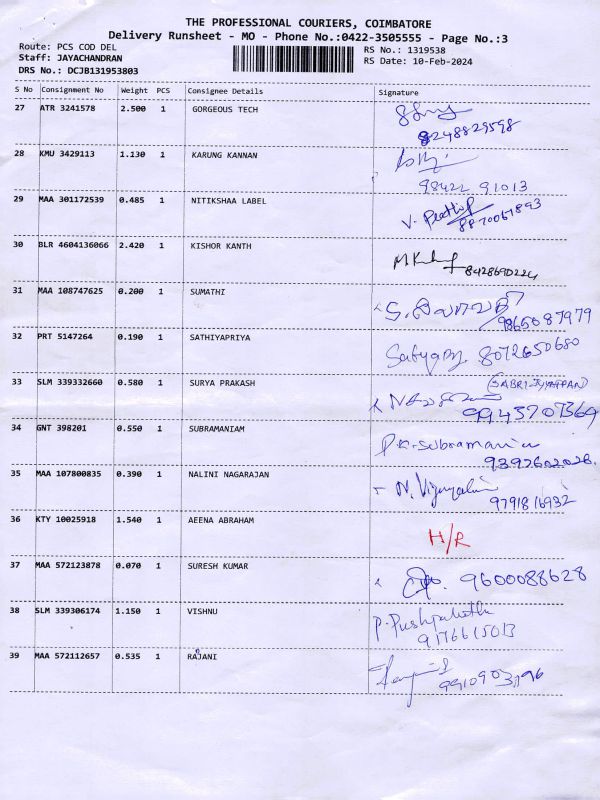 THE PROFESSIONAL COURIERS, COIMBATORE
Delivery Runsheet - MO - Phone No.:0422-3505555 - Page No.:3
Route: PCS COD DEL
RS No.: 1319538
Staff: JAYACHANDRAN
RS Date: 10-Feb-2024
DRS No.: DCJB131953803
S No Consignment No Weight PCS Consignee Details Signature
27 ATR 3241578 2.500 1 GORGEOUS TECH
8248829598
28 KMU 3429113 1.130 1 KARUNG KANNAN
98422 91013
29 MAA 301172539 0.485 1 NITIKSHAA LABEL
V.
8870067893
30 BLR 4604136066 2.420 1 KISHOR KANTH
31 MAA 108747625 0.200 1 SUMATHI
9865087979
32 PRT 5147264 0.190 1 SATHIYAPRIYA
8072650680
33 SLM 339332660 0.580 1 SURYA PRAKASH
9943707369
34 GNT 398201 0.550 1 SUBRAMANIAM
9392602026
35 MAA 107800835 0.390 1 NALINI NAGARAJAN
9791816932
36 KTY 10025918 1.540 1 AEENA ABRAHAM
H/R
37 MAA 572123878 0.070 1 SURESH KUMAR
9600088628
38 SLM 339306174 1.150 1 VISHNU
9176615013
39 MAA 572112657 0.535 1 RAJANI